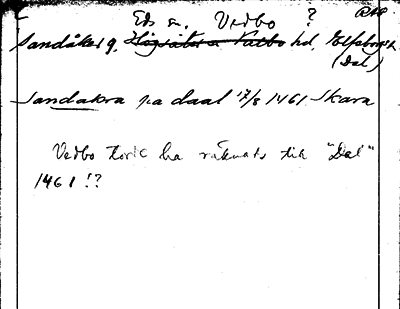 Eds sn. Vedbo ?
Sandåker g. Högsäters Valbo hd, Älfsborgs l.
(Dal)
Sandakra pa daal 17/8 1461 Skara
Vedbo torde ha räknats till "Dal"
1461 !?